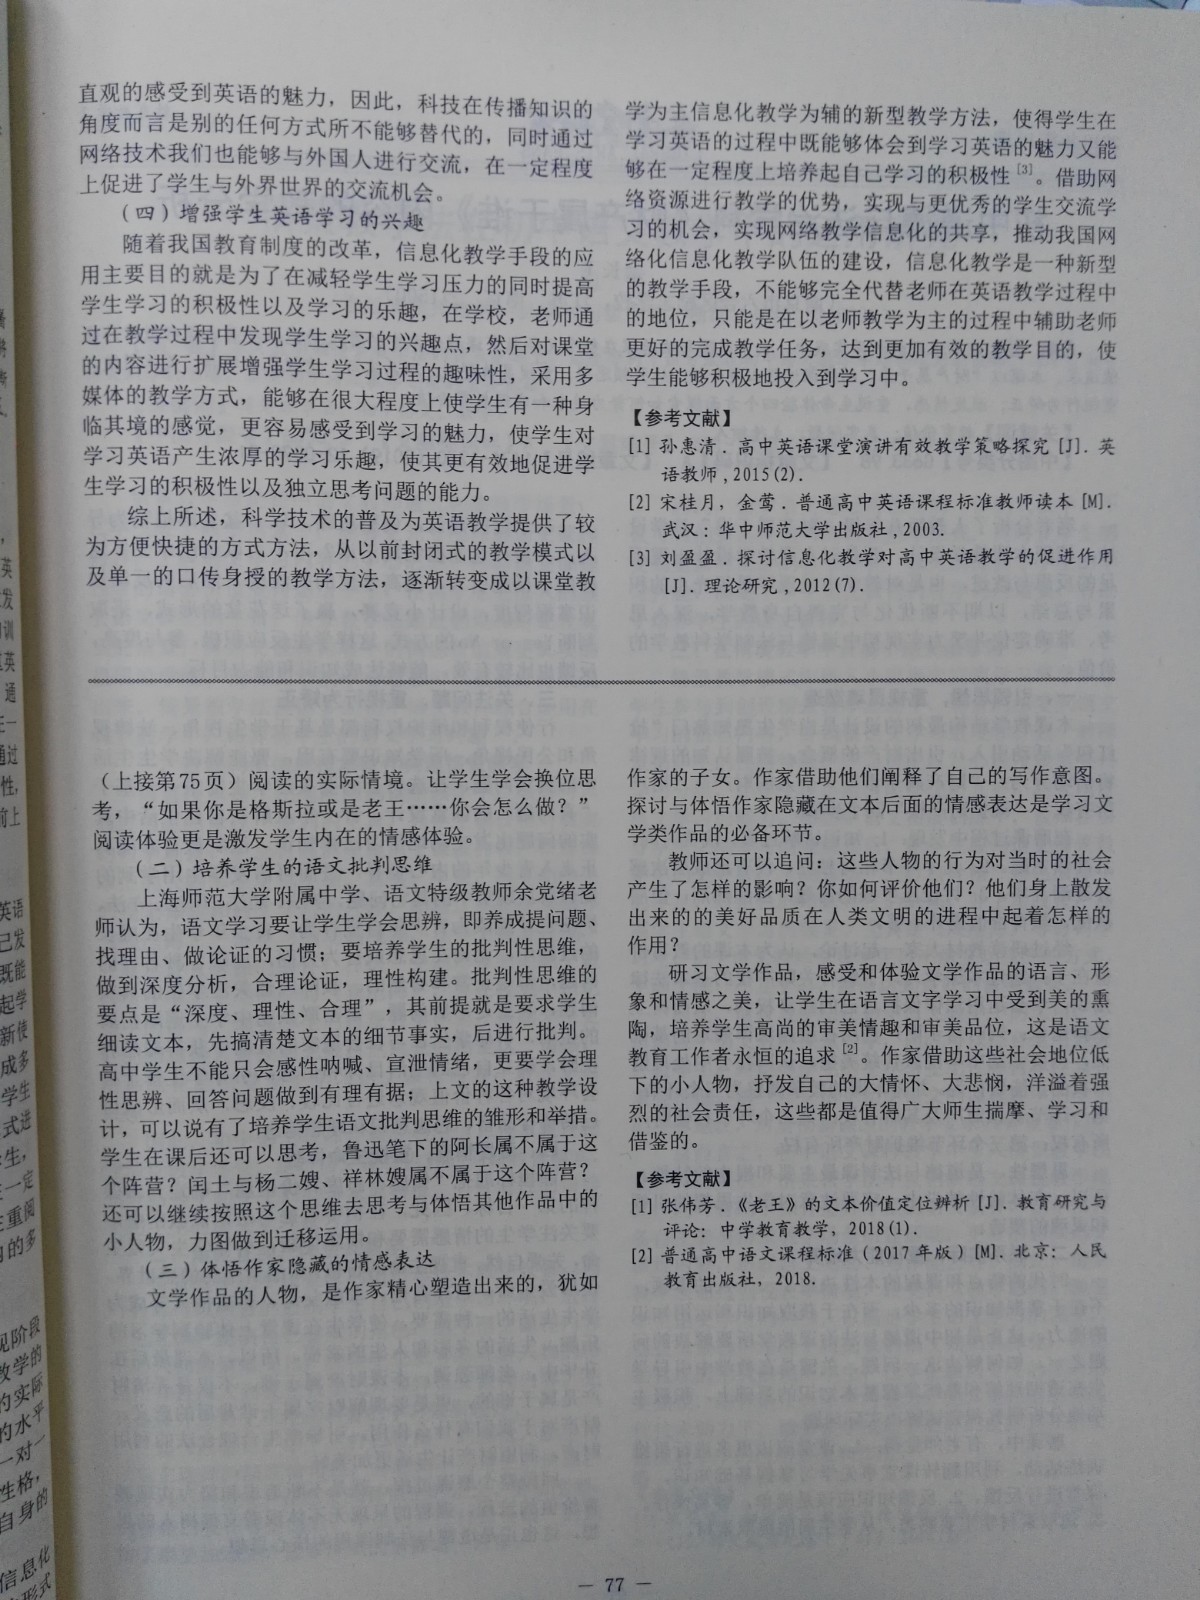 直观的感受到英语的魅力，因此，科技在传播知识的
角度而言是别的任何方式所不能够替代的，同时通过
网络技术我们也能够与外国人进行交流，在一定程度
上促进了学生与外界世界的交流机会。
（四）增强学生英语学习的兴趣
随着我国教育制度的改革，信息化教学手段的应
用主要目的就是为了在减轻学生学习压力的同时提高
学生学习的积极性以及学习的乐趣，在学校，老师通
过在教学过程中发现学生学习的兴趣点，然后对课堂
的内容进行扩展增强学生学习过程的趣味性，采用多
媒体的教学方式，能够在很大程度上使学生有一种身
临其境的感觉，更容易感受到学习的魅力，使学生对
学习英语产生浓厚的学习乐趣，使其更有效地促进学
生学习的积极性以及独立思考问题的能力。
综上所述，科学技术的普及为英语教学提供了较
为方便快捷的方式方法，从以前封闭式的教学模式以
及单一的口传身授的教学方法，逐渐转变成以课堂教
学为主信息化教学为辅的新型教学方法，使得学生在
学习英语的过程中既能够体会到学习英语的魅力又能
够在一定程度上培养起自己学习的积极性[3]。借助网
络资源进行教学的优势，实现与更优秀的学生交流学
习的机会，实现网络教学信息化的共享，推动我国网
络化信息化教学队伍的建设，信息化教学是一种新型
的教学手段，不能够完全代替老师在英语教学过程中
的地位，只能是在以老师教学为主的过程中辅助老师
更好的完成教学任务，达到更加有效的教学目的，使
学生能够积极地投入到学习中。
【参考文献】
[1] 孙惠清．高中英语课堂演讲有效教学策略探究 [J]．英
语教师，2015(2).
[2] 宋桂月，金莺．普通高中英语课程标准教师读本 [M].
武汉：华中师范大学出版社，2003.
[3] 刘盈盈．探讨信息化教学对高中英语教学的促进作用
[J]．理论研究，2012(7).
（上接第75页）阅读的实际情境。让学生学会换位思
考，“如果你是格斯拉或是老王……你会怎么做？”
阅读体验更是激发学生内在的情感体验。
（二）培养学生的语文批判思维
上海师范大学附属中学、语文特级教师余党绪老
师认为，语文学习要让学生学会思辨，即养成提问题、
找理由、做论证的习惯；要培养学生的批判性思维，
做到深度分析，合理论证，理性构建。批判性思维的
要点是“深度、理性、合理”，其前提就是要求学生
细读文本，先搞清楚文本的细节事实，后进行批判。
高中学生不能只会感性呐喊、宣泄情绪，更要学会理
性思辨、回答问题做到有理有据；上文的这种教学设
计，可以说有了培养学生语文批判思维的雏形和举措。
学生在课后还可以思考，鲁迅笔下的阿长属不属于这
个阵营？闰土与杨二嫂、祥林嫂属不属于这个阵营？
还可以继续按照这个思维去思考与体悟其他作品中的
小人物，力图做到迁移运用。
（三）体悟作家隐藏的情感表达
文学作品的人物，是作家精心塑造出来的，犹如
作家的子女。作家借助他们阐释了自己的写作意图。
探讨与体悟作家隐藏在文本后面的情感表达是学习文
学类作品的必备环节。
教师还可以追问：这些人物的行为对当时的社会
产生了怎样的影响？你如何评价他们？他们身上散发
出来的的美好品质在人类文明的进程中起着怎样的
作用？
研习文学作品，感受和体验文学作品的语言、形
象和情感之美，让学生在语言文字学习中受到美的熏
陶，培养学生高尚的审美情趣和审美品位，这是语文
教育工作者永恒的追求[2]。作家借助这些社会地位低
下的小人物，抒发自己的大情怀、大悲悯，洋溢着强
烈的社会责任，这些都是值得广大师生揣摩、学习和
借鉴的。
【参考文献】
[1] 张伟芳．《老王》的文本价值定位辨析 [J]．教育研究与
评论：中学教育教学，2018(1).
[2] 普通高中语文课程标准（2017年版）[M]．北京：人民
教育出版社，2018.
— 77 —